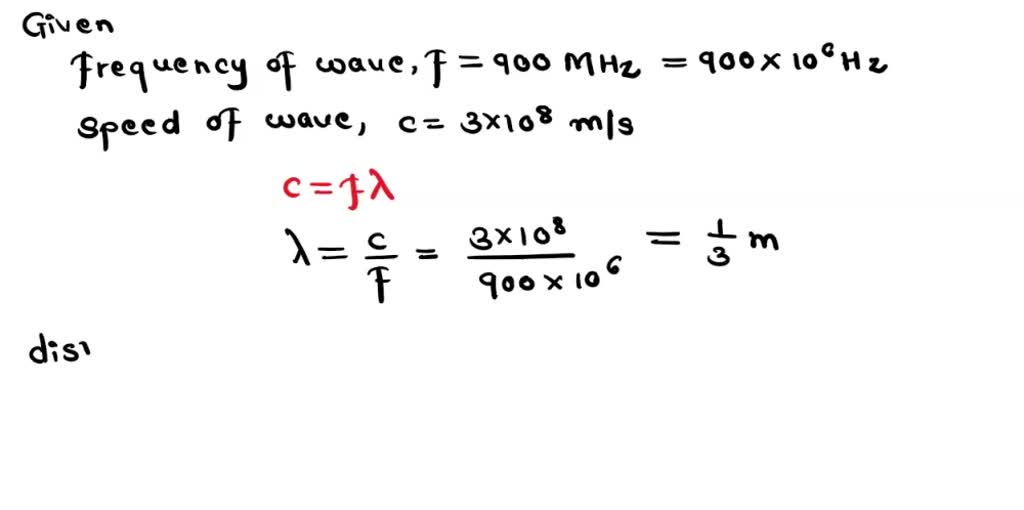 Given
frequency of wave, f = 900 MHz = 900 × 10⁶ Hz
speed of wave, c = 3×10⁸ m/s
c = fλ
λ = c/f = 3×10⁸ / 900 × 10⁶ = 1/3 m